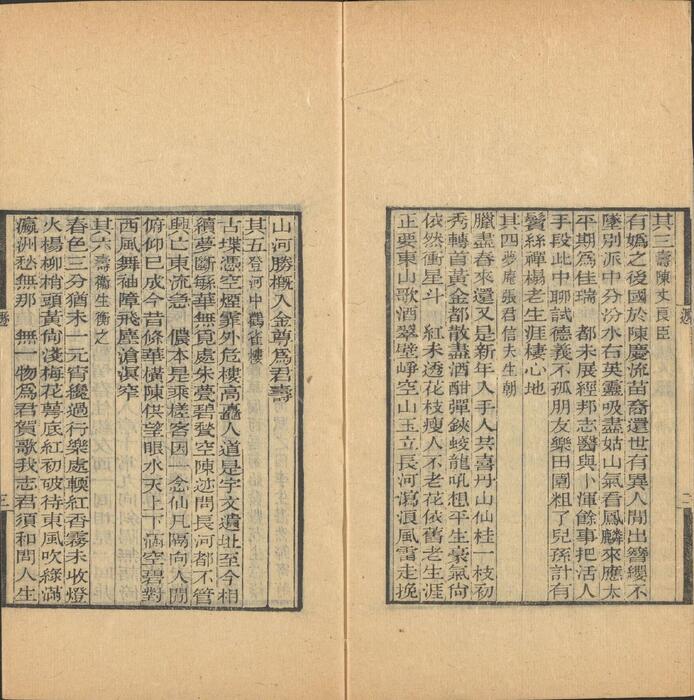 其三 壽陳丈良臣
有嬀之後國於陳慶流苗裔還世有異人閒出簪纓不
墜別派中分汾水右英靈吸盡姑山氣看鳳麟來應太
平期爲佳瑞 都未展經邦志醫與卜渾餘事把活人
手段此中聊試德義不孤朋友樂田園粗了兒孫計有
鬢絲禪榻老生涯棲心地
其四 夢庵張君信夫生朝
臘盡春來還又是新年入手人共喜丹山仙桂一枝初
秀轉首黃金都散盡酒酣彈鋏蛟龍吼想平生豪氣尙
依然衝星斗 紅未透花枝瘦人不老花依舊老生涯
正要東山歌酒翠壁崢空山玉立長河瀉浪風雷走挽
山河勝槪入金尊爲君壽
其五 登河中鸛雀樓
古堞憑空煙霏外危樓高矗人道是宇文遺址至今相
續夢斷繁華無覓處朱甍碧甃空陳迹問長河都不管
興亡東流急 儂本是乘槎客因一念仙凡隔向人閒
俯仰已成今昔條華橫陳供望眼水天上下涵空碧對
西風舞袖障飛塵滄溟窄
其六 壽衞生衡之
春色三分猶未一元宵纔過行樂處輭紅香霧未收燈
火楊柳梢頭黃尙淺梅花萼底紅初破待東風吹綠滿
瀛洲愁無那 無一物爲君賀歌我志君須和問人生
遯
二
遯
三